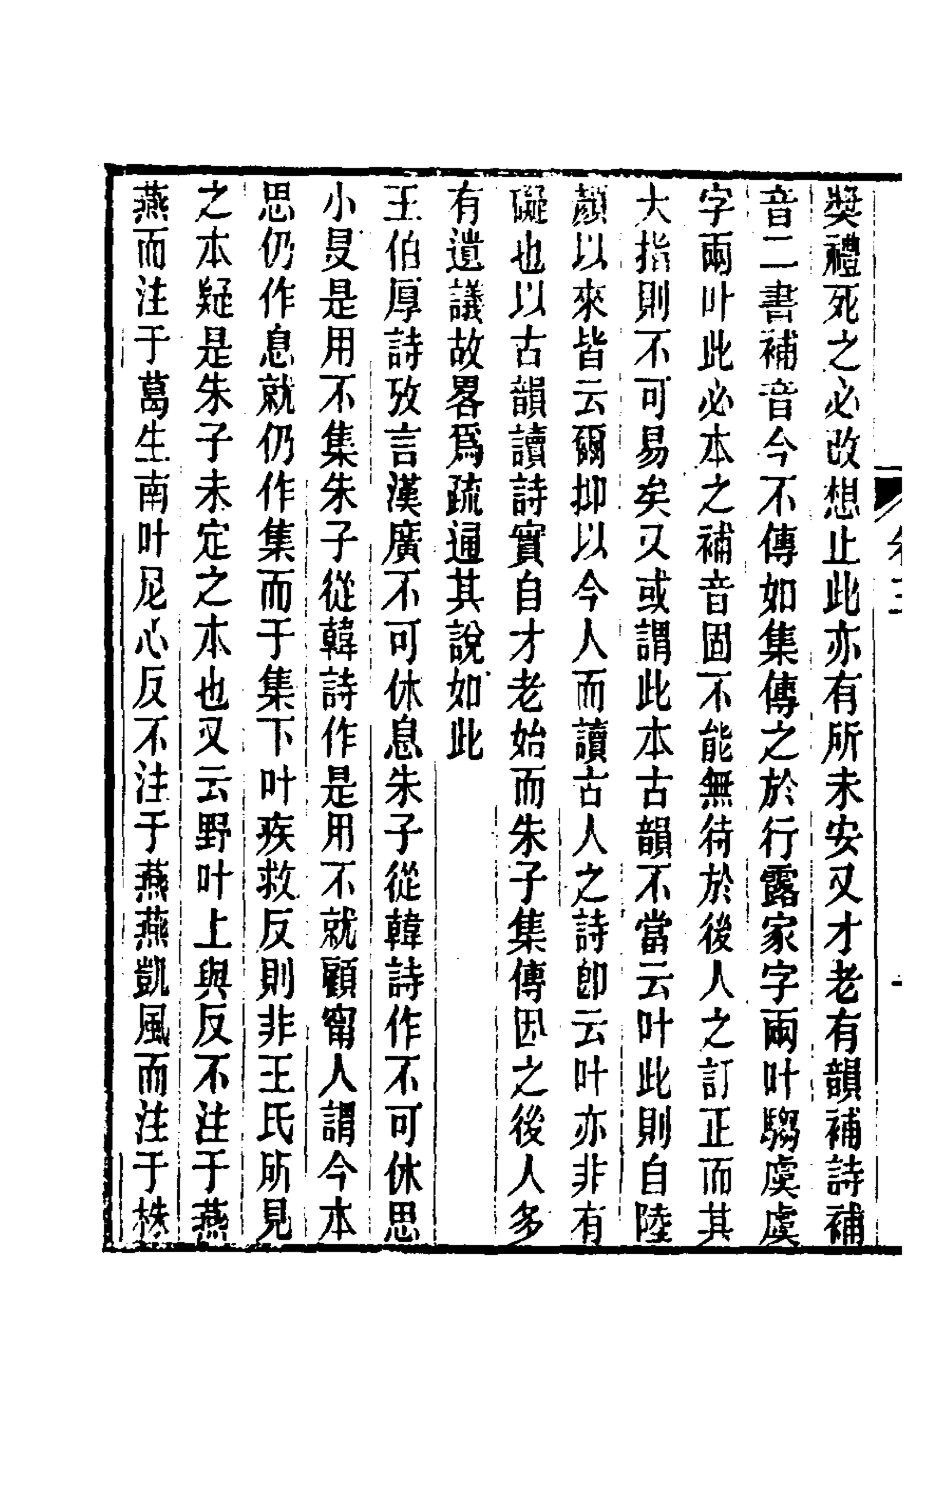 獎禮死之必改想止此亦有所未安又才老有韻補詩補
音二書補音今不傳如集傳之於行露家字兩叶騶虞虞
字兩叶此必本之補音固不能無待於後人之訂正而其
大指則不可易矣又或謂此本古韻不當云叶此則自陸
顏以來皆云爾抑以今人而讀古人之詩卽云叶亦非有
礙也以古韻讀詩實自才老始而朱子集傳因之後人多
有遺議故畧爲疏通其說如此
王伯厚詩攷言漢廣不可休息朱子從韓詩作不可休思
小旻是用不集朱子從韓詩作是用不就顧甯人謂今本
思仍作息就仍作集而于集下叶疾救反則非王氏所見
之本疑是朱子未定之本也又云野叶上與反不注于燕
燕而注于葛生南叶尼心反不注于燕燕凱風而注于株